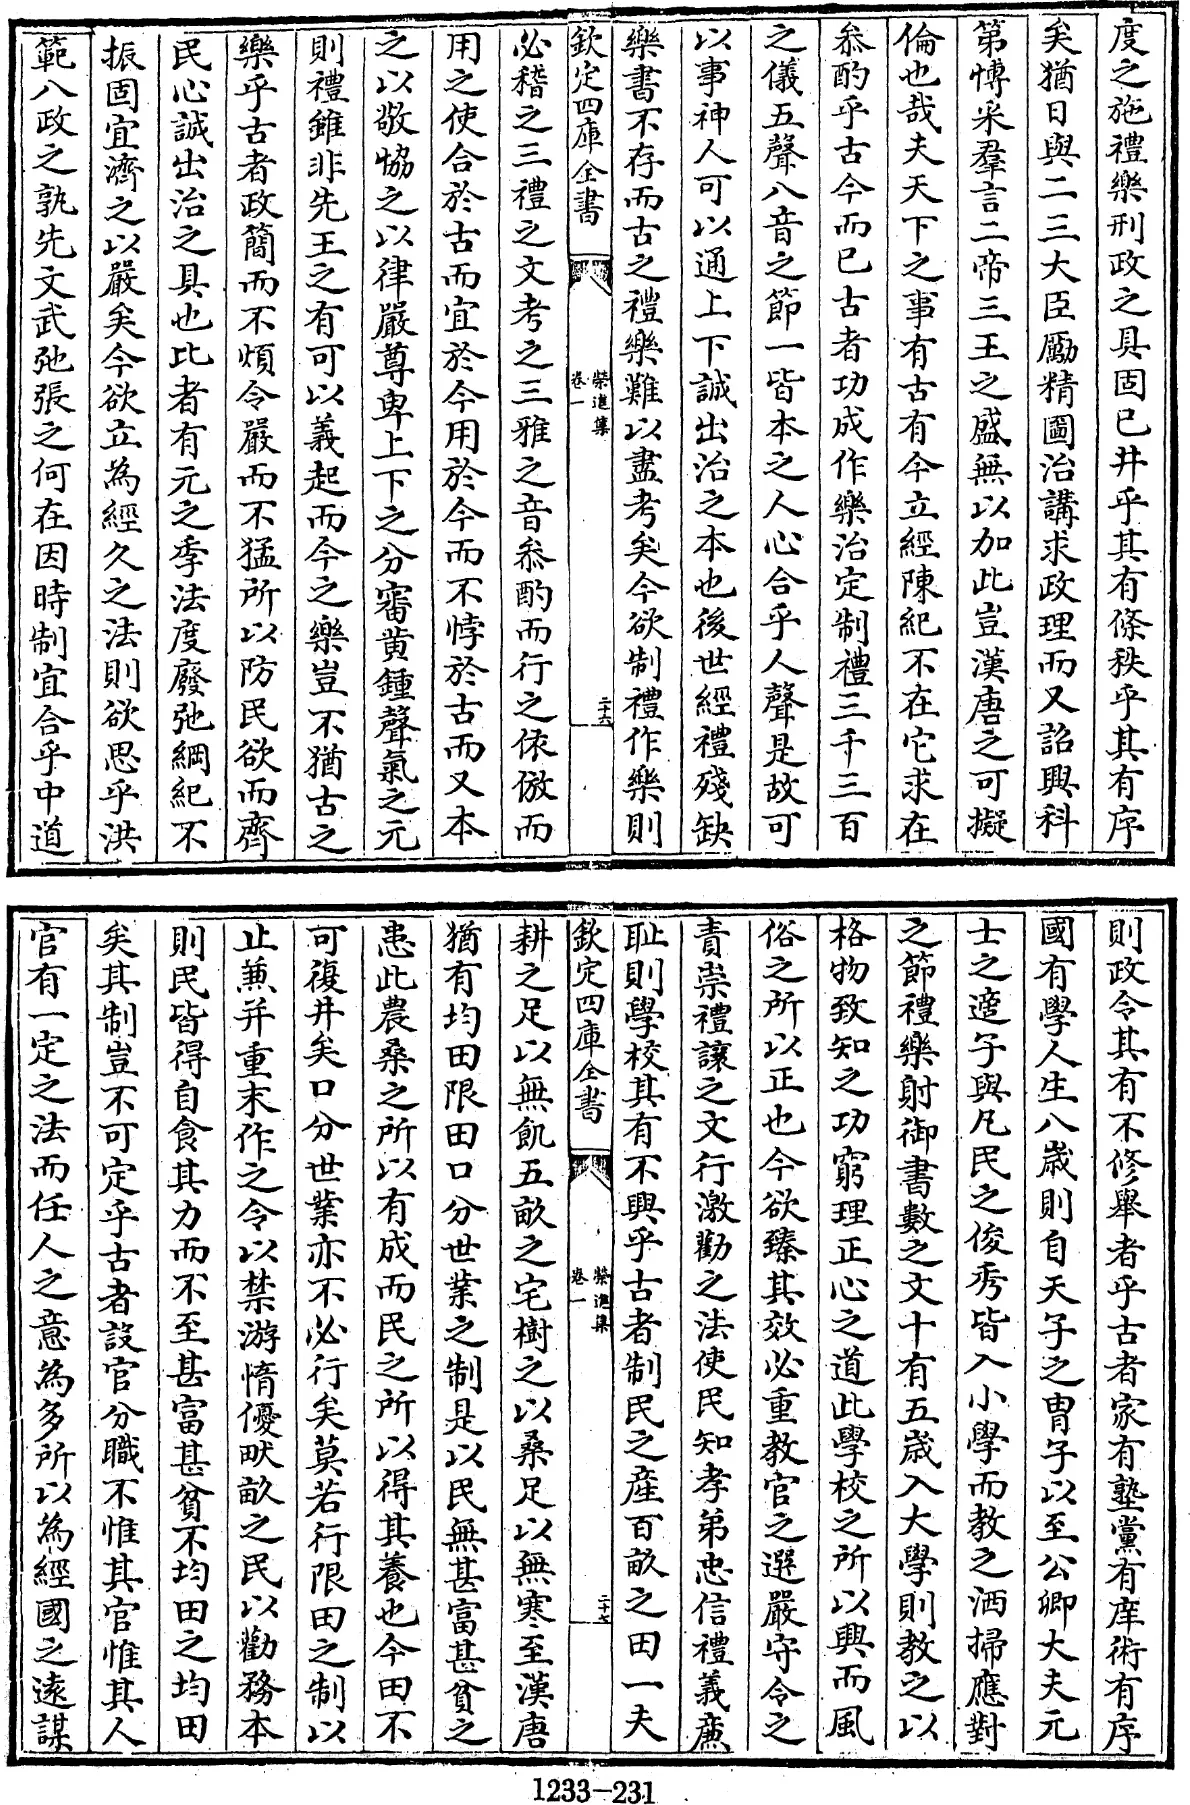 度之施禮樂刑政之具固已井乎其有條秩乎其有序
矣猶日與二三大臣勵精圖治講求政理而又詔興科
第愽采羣言二帝三王之盛無以加此豈漢唐之可擬
倫也哉夫天下之事有古有今立經陳紀不在它求在
叅酌乎古今而已古者功成作樂治定制禮三千三百
之儀五聲八音之節一皆本之人心合乎人聲是故可
以事神人可以通上下誠出治之本也後世經禮殘缺
樂書不存而古之禮樂難以盡考矣今欲制禮作樂則
欽定四庫全書
榮進集
卷一
二十六
必稽之三禮之文考之三雅之音叅酌而行之依倣而
用之使合於古而宜於今用於今而不悖於古而又本
之以敬恊之以律嚴尊卑上下之分審黄鍾聲氣之元
則禮雖非先王之有可以義起而今之樂豈不猶古之
樂乎古者政簡而不煩令嚴而不猛所以防民欲而齊
民心誠出治之具也比者有元之季法度廢弛綱紀不
振固宜濟之以嚴矣今欲立為經久之法則欲思乎洪
範八政之孰先文武弛張之何在因時制宜合乎中道
則政令其有不修舉者乎古者家有塾黨有庠術有序
國有學人生八歳則自天子之胄子以至公卿大夫元
士之適子與凡民之俊秀皆入小學而教之洒掃應對
之節禮樂射御書數之文十有五歳入大學則教之以
格物致知之功窮理正心之道此學校之所以興而風
俗之所以正也今欲臻其效必重教官之選嚴守令之
責崇禮讓之文行激勸之法使民知孝弟忠信禮義亷
耻則學校其有不興乎古者制民之産百畝之田一夫
欽定四庫全書
榮進集
卷一
二十七
耕之足以無飢五畝之宅樹之以桑足以無寒至漢唐
猶有均田限田口分世業之制是以民無甚富甚貧之
患此農桑之所以有成而民之所以得其養也今田不
可復井矣口分世業亦不必行矣莫若行限田之制以
止兼并重末作之令以禁游惰優畎畝之民以勸務本
則民皆得自食其力而不至甚富甚貧不均田之均田
矣其制豈不可定乎古者設官分職不惟其官惟其人
官有一定之法而任人之意為多所以為經國之遠謀
1233-231